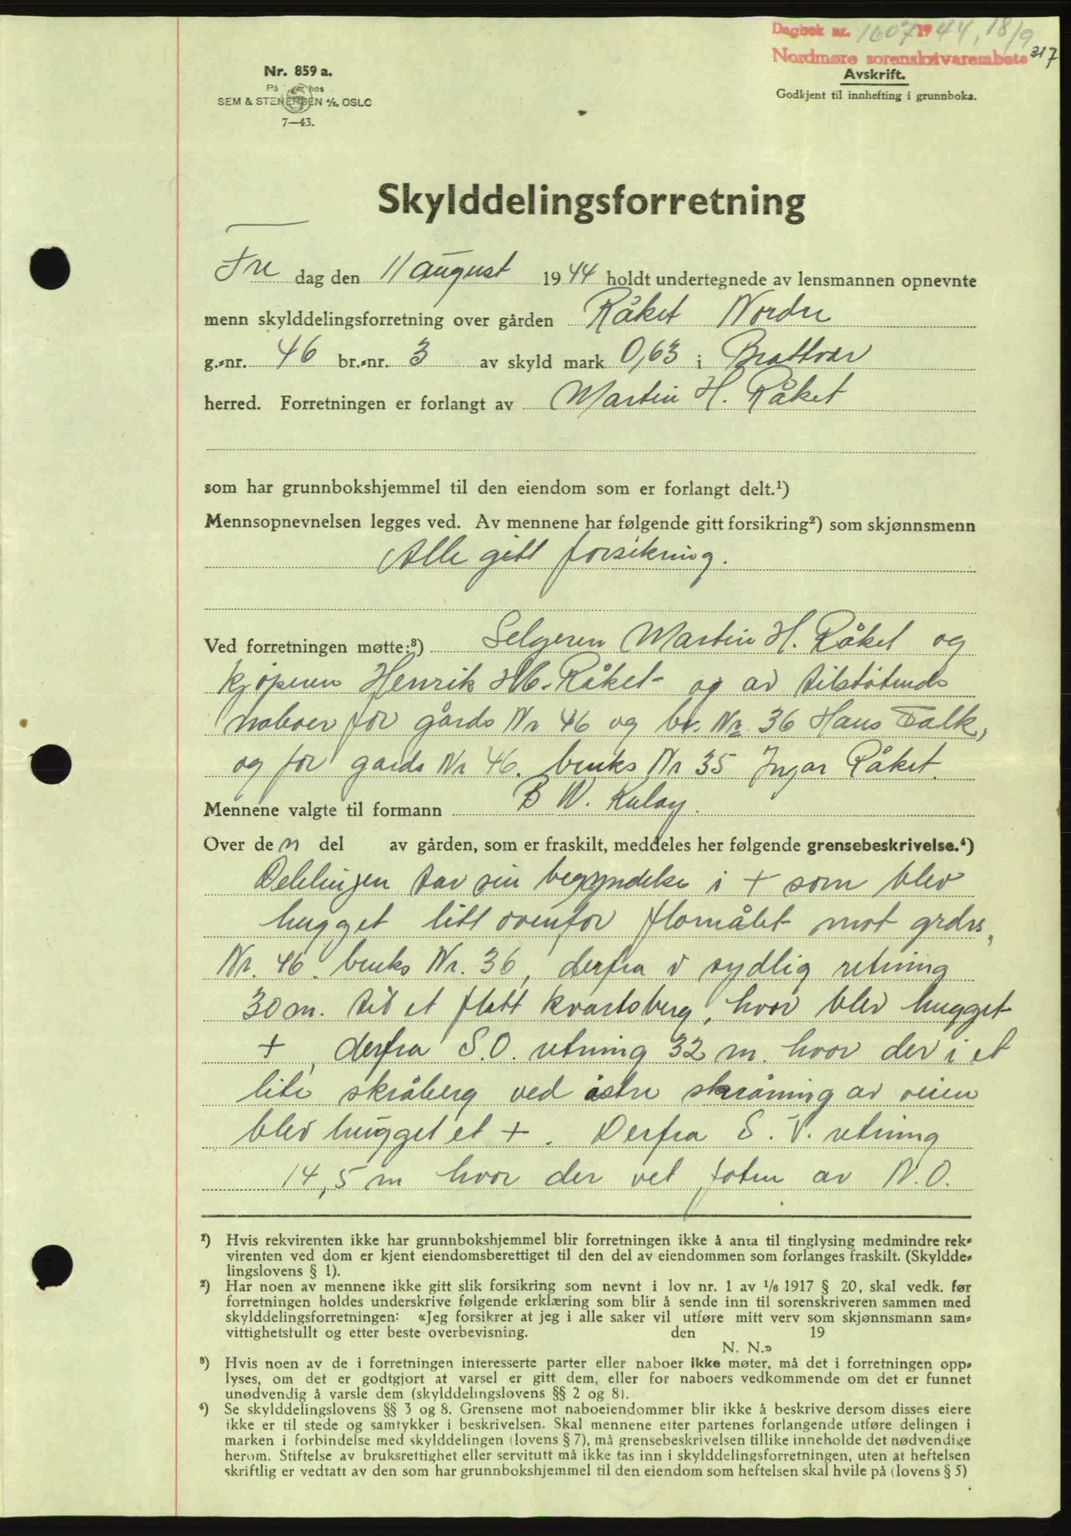 Dagbok nr. 1607 1944, 18/9
Nordmøre sorenskrivarembete 317
Avskrift.
Godkjent til innhefting i grunnboka.
Nr. 859 a.
På lager hos
SEM & STENERSEN A/S, OSLO
7—43.
Skylddelingsforretning
Fre dag den 11 august 1944 holdt undertegnede av lensmannen opnevnte
menn skylddelingsforretning over gården Råket Nordre
g.-nr. 46 br.-nr. 3 av skyld mark 0,63 i Brattvær
herred. Forretningen er forlangt av Martin H. Råket
som har grunnbokshjemmel til den eiendom som er forlangt delt.¹)
Mennsopnevnelsen legges ved. Av mennene har følgende gitt forsikring²) som skjønnsmenn
Alle gitt forsikring.
Ved forretningen møtte:³) Selgeren Martin H. Råket og
kjøperen Henrik M. Råket og av tilstøtende
naboer for gårds Nr 46 og br. Nr. 36 Hans Falk,
og for gards Nr 46. bruks Nr 35 Ingar Råket.
Mennene valgte til formann B W. Kuløy.
Over den del av gården, som er fraskilt, meddeles her følgende grensebeskrivelse.⁴)
Delelinjen tar sin begyndelse i + som blev
hugget litt ovenfor flomålet mot grds,
Nr. 46. bruks Nr. 36, derfra i sydlig retning
30 m. til et flatt kvartsberg, hvor blev hugget
+, derfra S.O. retning 32 m. hvor der i et
lite skråberg ved østre skråning av veien
blev hugget et +. Derfra S.V. retning
14,5 m hvor der vet foten av N.O.
¹) Hvis rekvirenten ikke har grunnbokshjemmel blir forretningen ikke å anta til tinglysing medmindre rek-
virenten ved dom er kjent eiendomsberettiget til den del av eiendommen som forlanges fraskilt. (Skyldde-
lingslovens § 1).
²) Har noen av mennene ikke gitt slik forsikring som nevnt i lov nr. 1 av 1/6 1917 § 20, skal vedk. før
forretningen holdes underskrive følgende erklæring som blir å sende inn til sorenskriveren sammen med
skylddelingsforretningen: «Jeg forsikrer at jeg i alle saker vil utføre mitt verv som skjønnsmann sam-
vittighetsfullt og etter beste overbevisning. den 19
N. N.»
³) Hvis noen av de i forretningen interesserte parter eller naboer ikke møter, må det i forretningen opp-
lyses, om det er godtgjort at varsel er gitt dem, eller for naboers vedkommende om det er funnet
unødvendig å varsle dem (skylddelingslovens §§ 2 og 8).
⁴) Se skylddelingslovens §§ 3 og 8. Grensene mot naboeiendommer blir ikke å beskrive dersom disses eiere
ikke er til stede og samtykker i beskrivelsen. Skal mennene etter partenes forlangende utføre delingen i
marken i forbindelse med skylddelingen (lovens § 7), må grensebeskrivelsen tillike inneholde det nødvendige
herom. Stiftelse av bruksrettighet eller servitutt må ikke tas inn i skylddelingsforretningen, uten at heftelsen
skriftlig er vedtatt av den som har grunnbokshjemmel til den eiendom som heftelsen skal hvile på (lovens § 5)